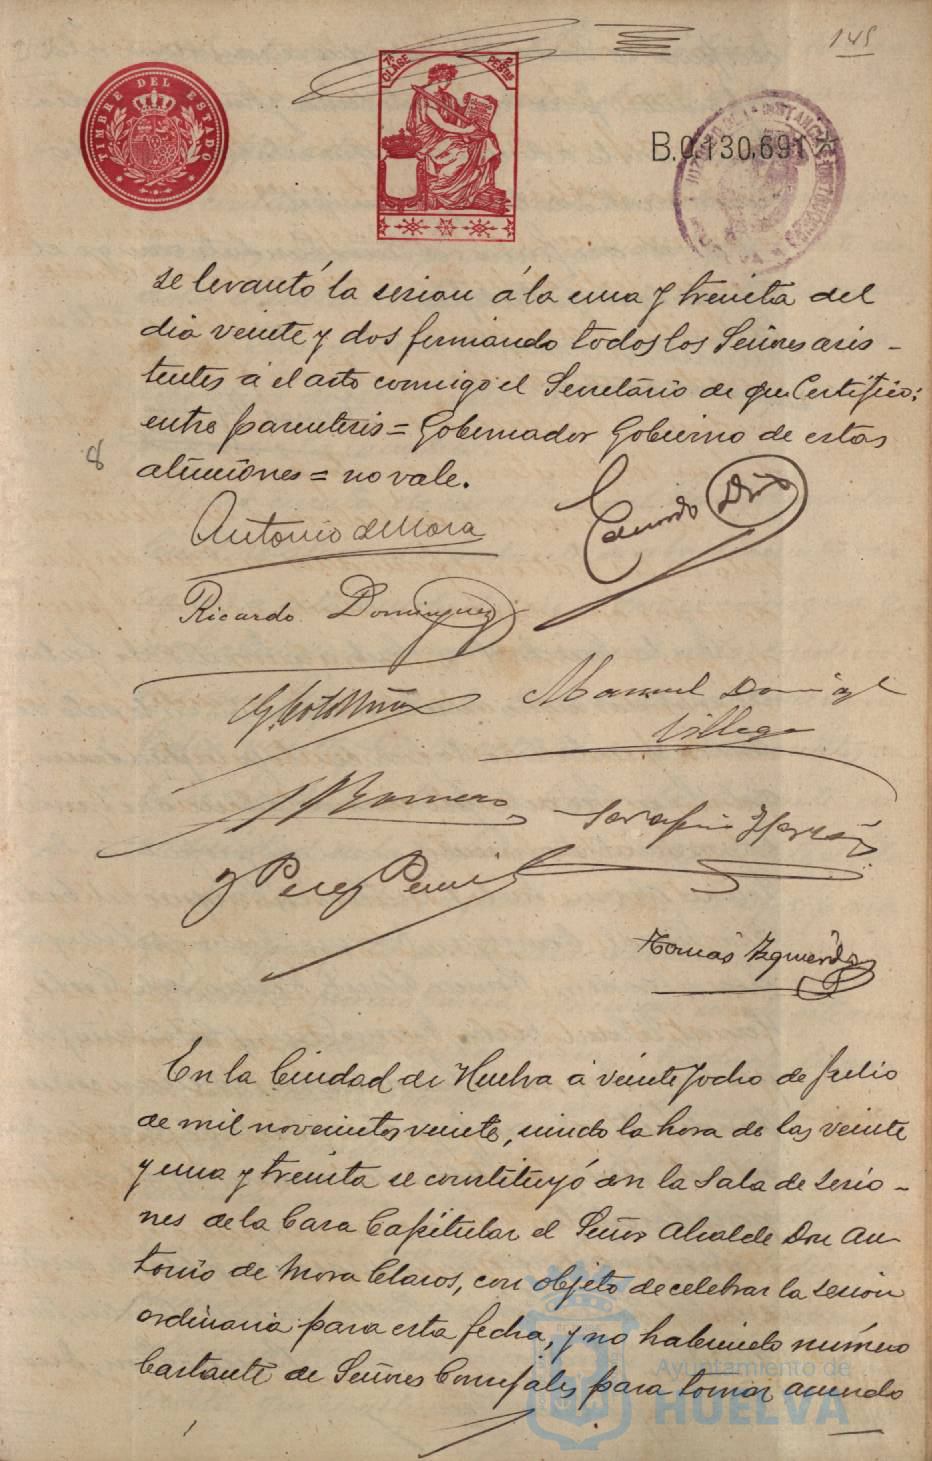 145
TIMBRE DEL ESTADO
7ª CLASE
PESTAS
B.0.130.691 *
JUZGADO DE 1ª INSTANCIA
HUELVA
se levantó la sesion á la una y treinta del
dia veinte y dos firmando todos los Señores asis-
tentes á el acto conmigo el Secretario de que Certifico:
entre parentesis = Gobernador Gobierno de estas
atenciones = no vale.
8
Antonio de Mora
Ricardo Dominguez
Manuel Doming
Villega
Romero
Serafin
y Perez
Tomás Izquierdo
En la Ciudad de Huelva á veinte y ocho de Julio
de mil novecientos veinte, siendo la hora de las veinte
y una y treinta se constituyó en la Sala de Sesio-
nes de la Casa Capitular el Señor Alcalde Don An-
tonio de Mora Claros, con objeto de celebrar la sesion
ordinaria para esta fecha, y no habiendo número
bastante de Señores Concejales para tomar acuerdo
Ayuntamiento de
HUELVA